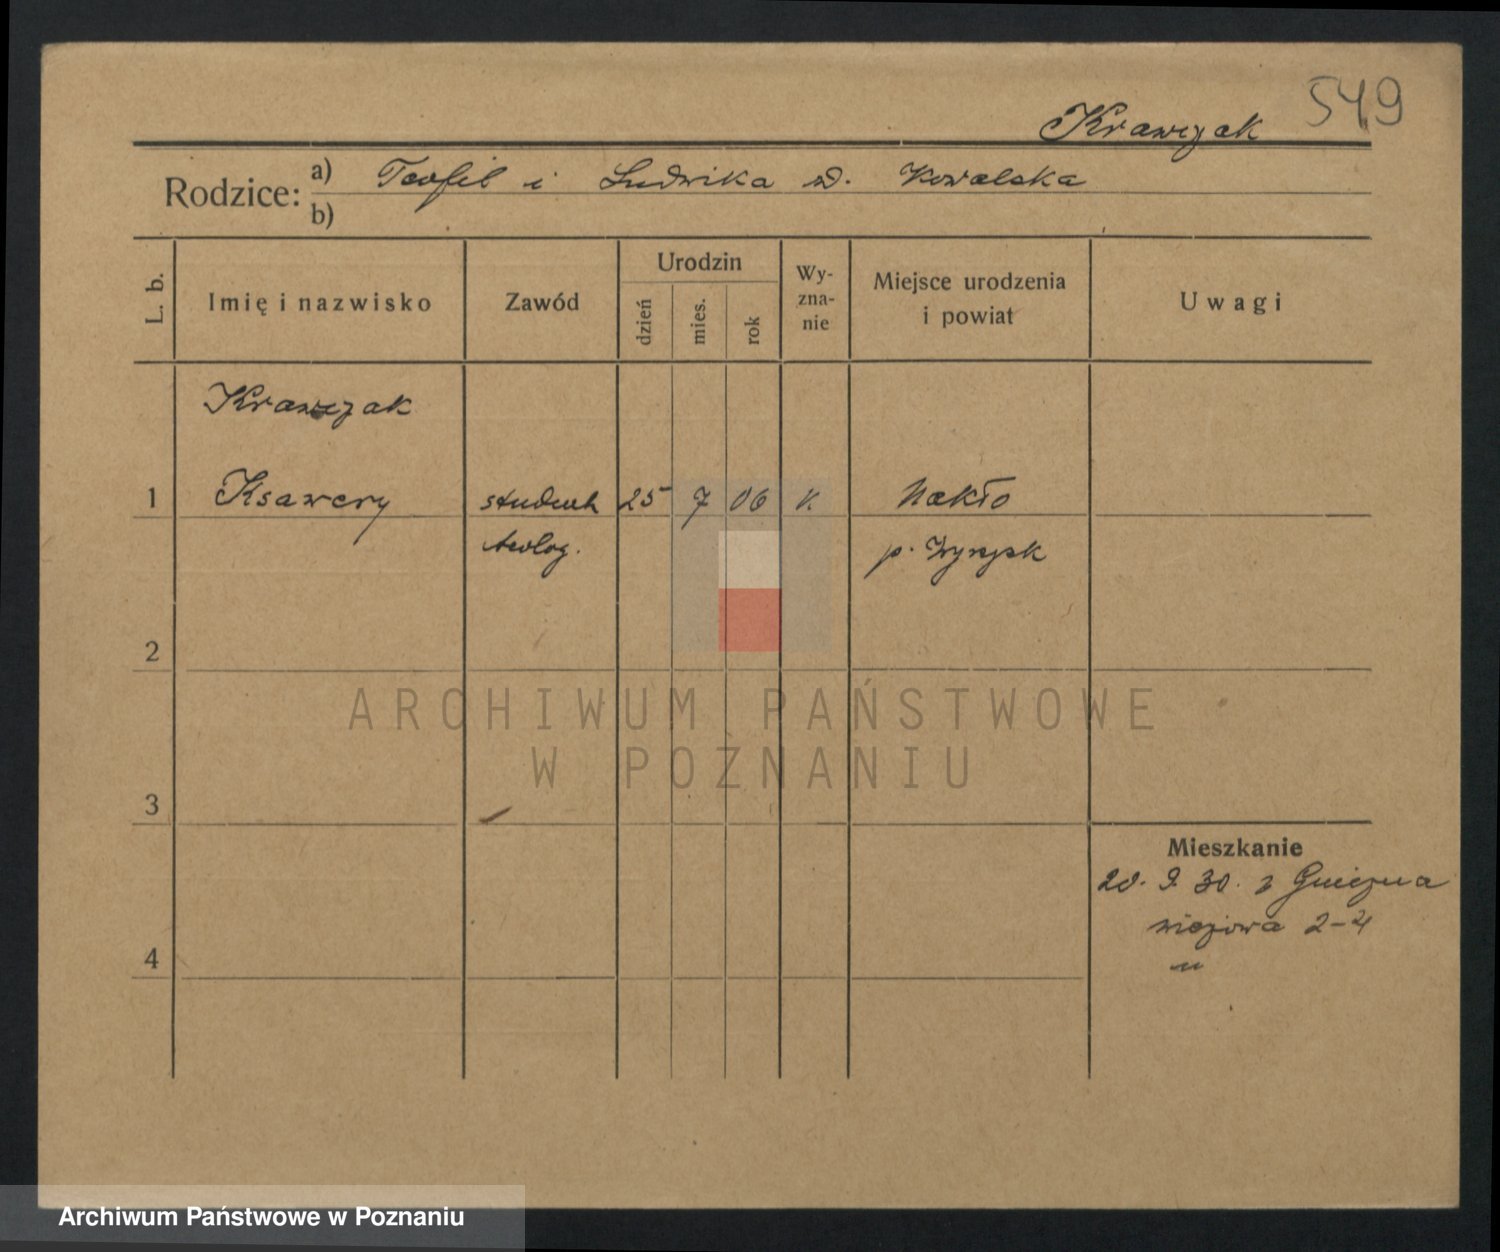 549
Krawczak
Rodzice:
a) Teofil i Ludwika d. Kowalska
b)
L. b.
Imię i nazwisko
Zawód
Urodzin
dzień
mies.
rok
Wy-
zna-
nie
Miejsce urodzenia
i powiat
Uwagi
Krawczak
1 Ksawery student 25 7 06 k. Nakło
teolog. p. Wyrzysk
2
ARCHIWUM PAŃSTWOWE
W POZNANIU
3
Mieszkanie
20. 9. 30. z Gniezna
wieżowa 2-4
4
Archiwum Państwowe w Poznaniu